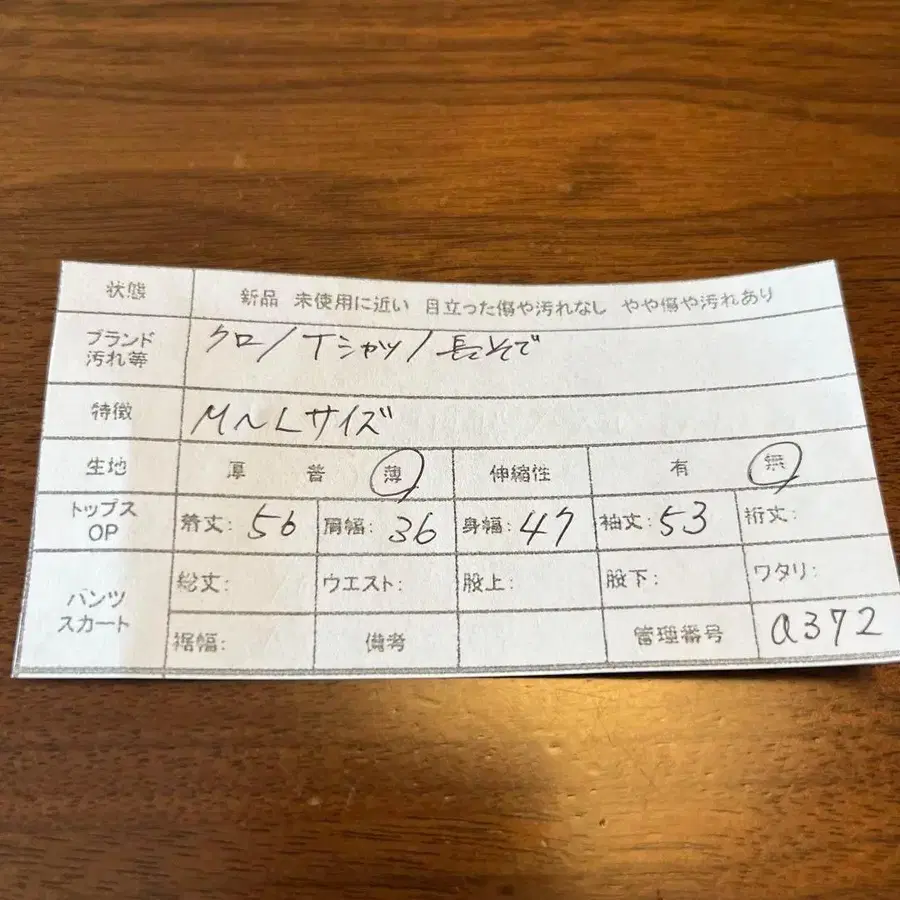 状態 新品 未使用に近い 目立った傷や汚れなし やや傷や汚れあり
ブランド 汚れ等 クロ/Tシャツ/長そで
特徴 M〜Lサイズ
生地 厚 普 薄 伸縮性 有 無
トップス OP 着丈: 56 肩幅: 36 身幅: 47 袖丈: 53 裄丈:
パンツ スカート 総丈: ウエスト: 股上: 股下: ワタリ:
裾幅: 備考 管理番号 a372